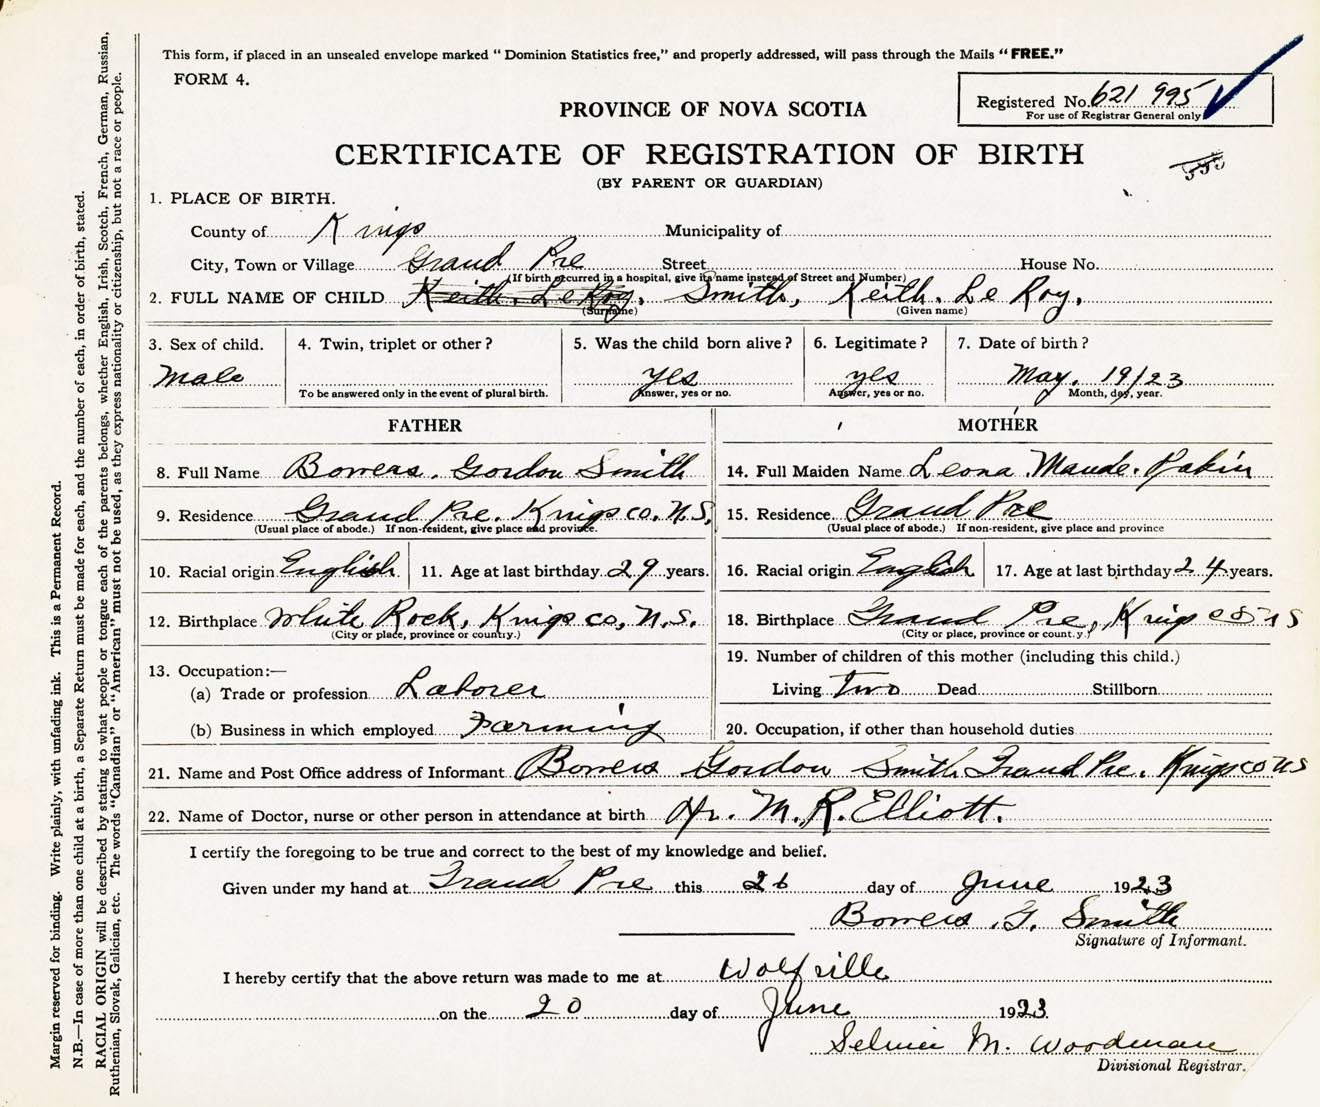 This form, if placed in an unsealed envelope marked “ Dominion Statistics free,” and properly addressed, will pass through the Mails “ FREE.”
FORM 4.
Registered No. 621 995
For use of Registrar General only
PROVINCE OF NOVA SCOTIA
CERTIFICATE OF REGISTRATION OF BIRTH
(BY PARENT OR GUARDIAN)
1. PLACE OF BIRTH.
County of Kings Municipality of
City, Town or Village Grand Pre Street House No.
(If birth occurred in a hospital, give its name instead of Street and Number)
2. FULL NAME OF CHILD Keith. LeRoy. Smith, Keith. Le Roy.
(Surname) (Given name)
3. Sex of child. 4. Twin, triplet or other ? 5. Was the child born alive ? 6. Legitimate ? 7. Date of birth ?
Male yes yes May. 19/23
To be answered only in the event of plural birth. Answer, yes or no. Answer, yes or no. Month, day, year.
FATHER MOTHER
8. Full Name Bowers. Gordon Smith 14. Full Maiden Name Leona Maude.
9. Residence Grand Pre. Kings co. N.S. 15. Residence Grand Pre
(Usual place of abode.) If non-resident, give place and province. (Usual place of abode.) If non-resident, give place and province
10. Racial origin English 11. Age at last birthday 29 years. 16. Racial origin English 17. Age at last birthday 24 years.
12. Birthplace White Rock, Kings co, N.S. 18. Birthplace Grand Pre, Kings co N S
(City or place, province or country.) (City or place, province or count.y.)
13. Occupation:— 19. Number of children of this mother (including this child.)
(a) Trade or profession Laborer Living Two Dead Stillborn
(b) Business in which employed Farming 20. Occupation, if other than household duties
21. Name and Post Office address of Informant Bowers Gordon Smith Grand Pre. Kings co N S
22. Name of Doctor, nurse or other person in attendance at birth Dr. M. R. Elliott.
I certify the foregoing to be true and correct to the best of my knowledge and belief.
Given under my hand at Grand Pre this 26 day of June 1923
Bowers. G. Smith
Signature of Informant.
I hereby certify that the above return was made to me at Wolfville
on the 20 day of June 1923
M. Woodman
Divisional Registrar.
Margin reserved for binding. Write plainly, with unfading ink. This is a Permanent Record.
N.B.—In case of more than one child at a birth, a Separate Return must be made for each, and the number of each, in order of birth, stated.
RACIAL ORIGIN will be described by stating to what people or tongue each of the parents belongs, whether English, Irish, Scotch, French, German, Russian,
Ruthenian, Slovak, Galician, etc. The words “Canadian” or “American” must not be used, as they express nationality or citizenship, but not a race or people.